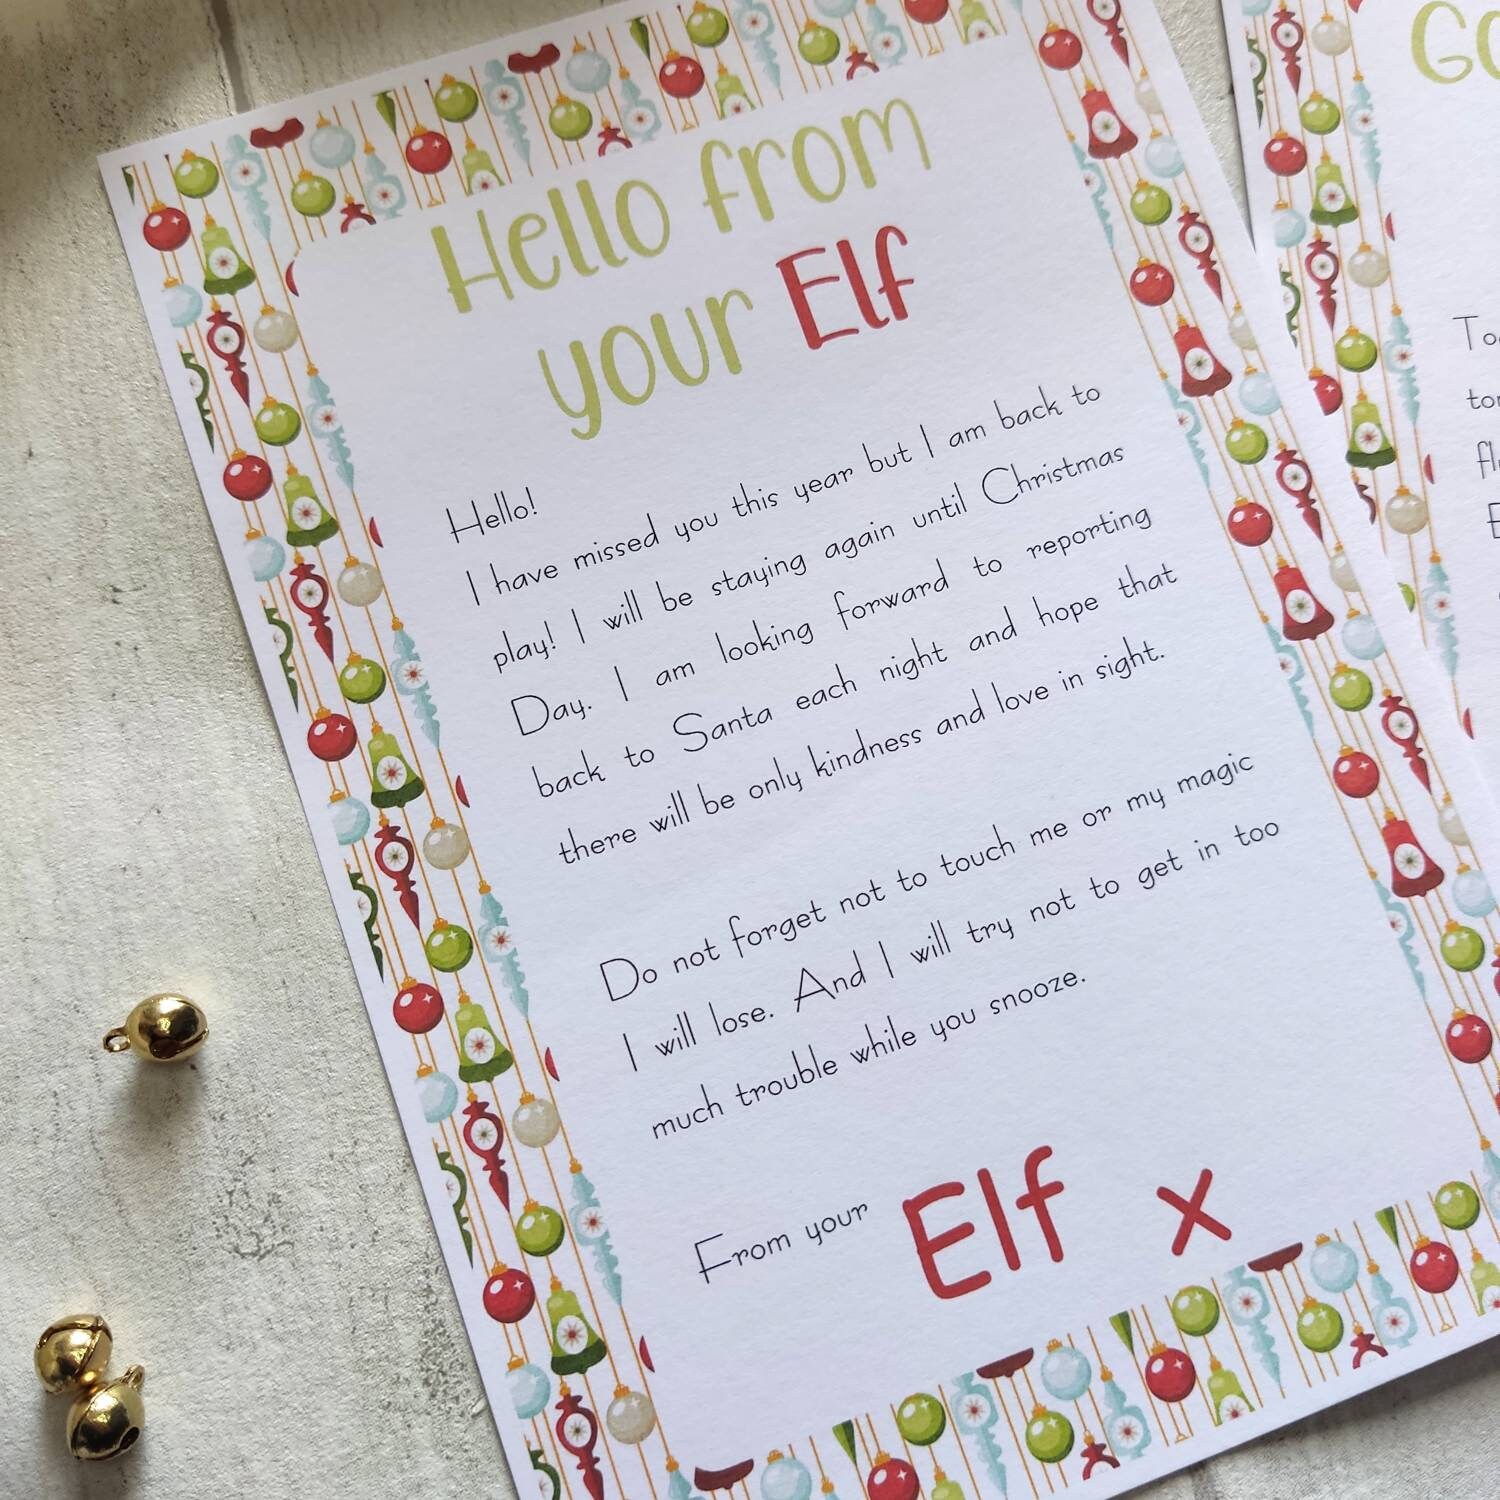 Hello from
your Elf
Hello!
I have missed you this year but I am back to
play! I will be staying again until Christmas
Day. I am looking forward to reporting
back to Santa each night and hope that
there will be only kindness and love in sight.
Do not forget not to touch me or my magic
I will lose. And I will try not to get in too
much trouble while you snooze.
From your Elf x